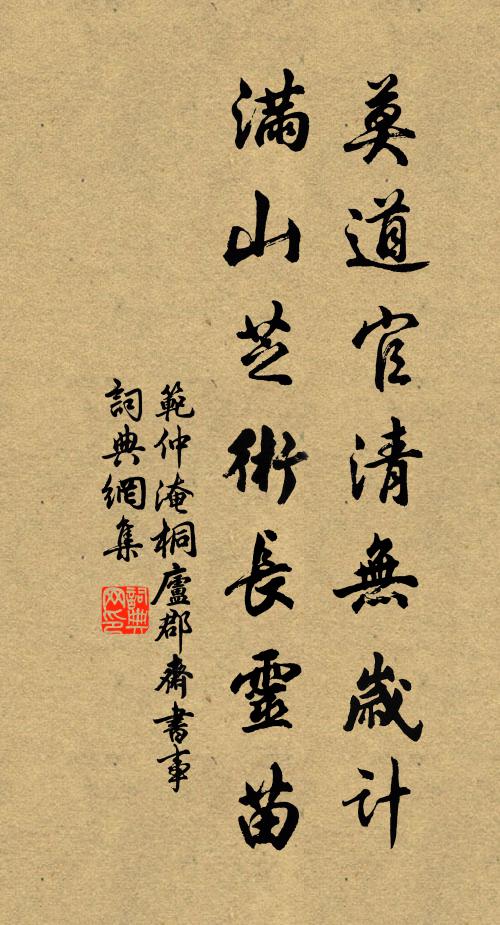 莫道官清無歲計
滿山芝術長靈苗
範仲淹桐廬郡齋書事
詞典網集
詞典
网印